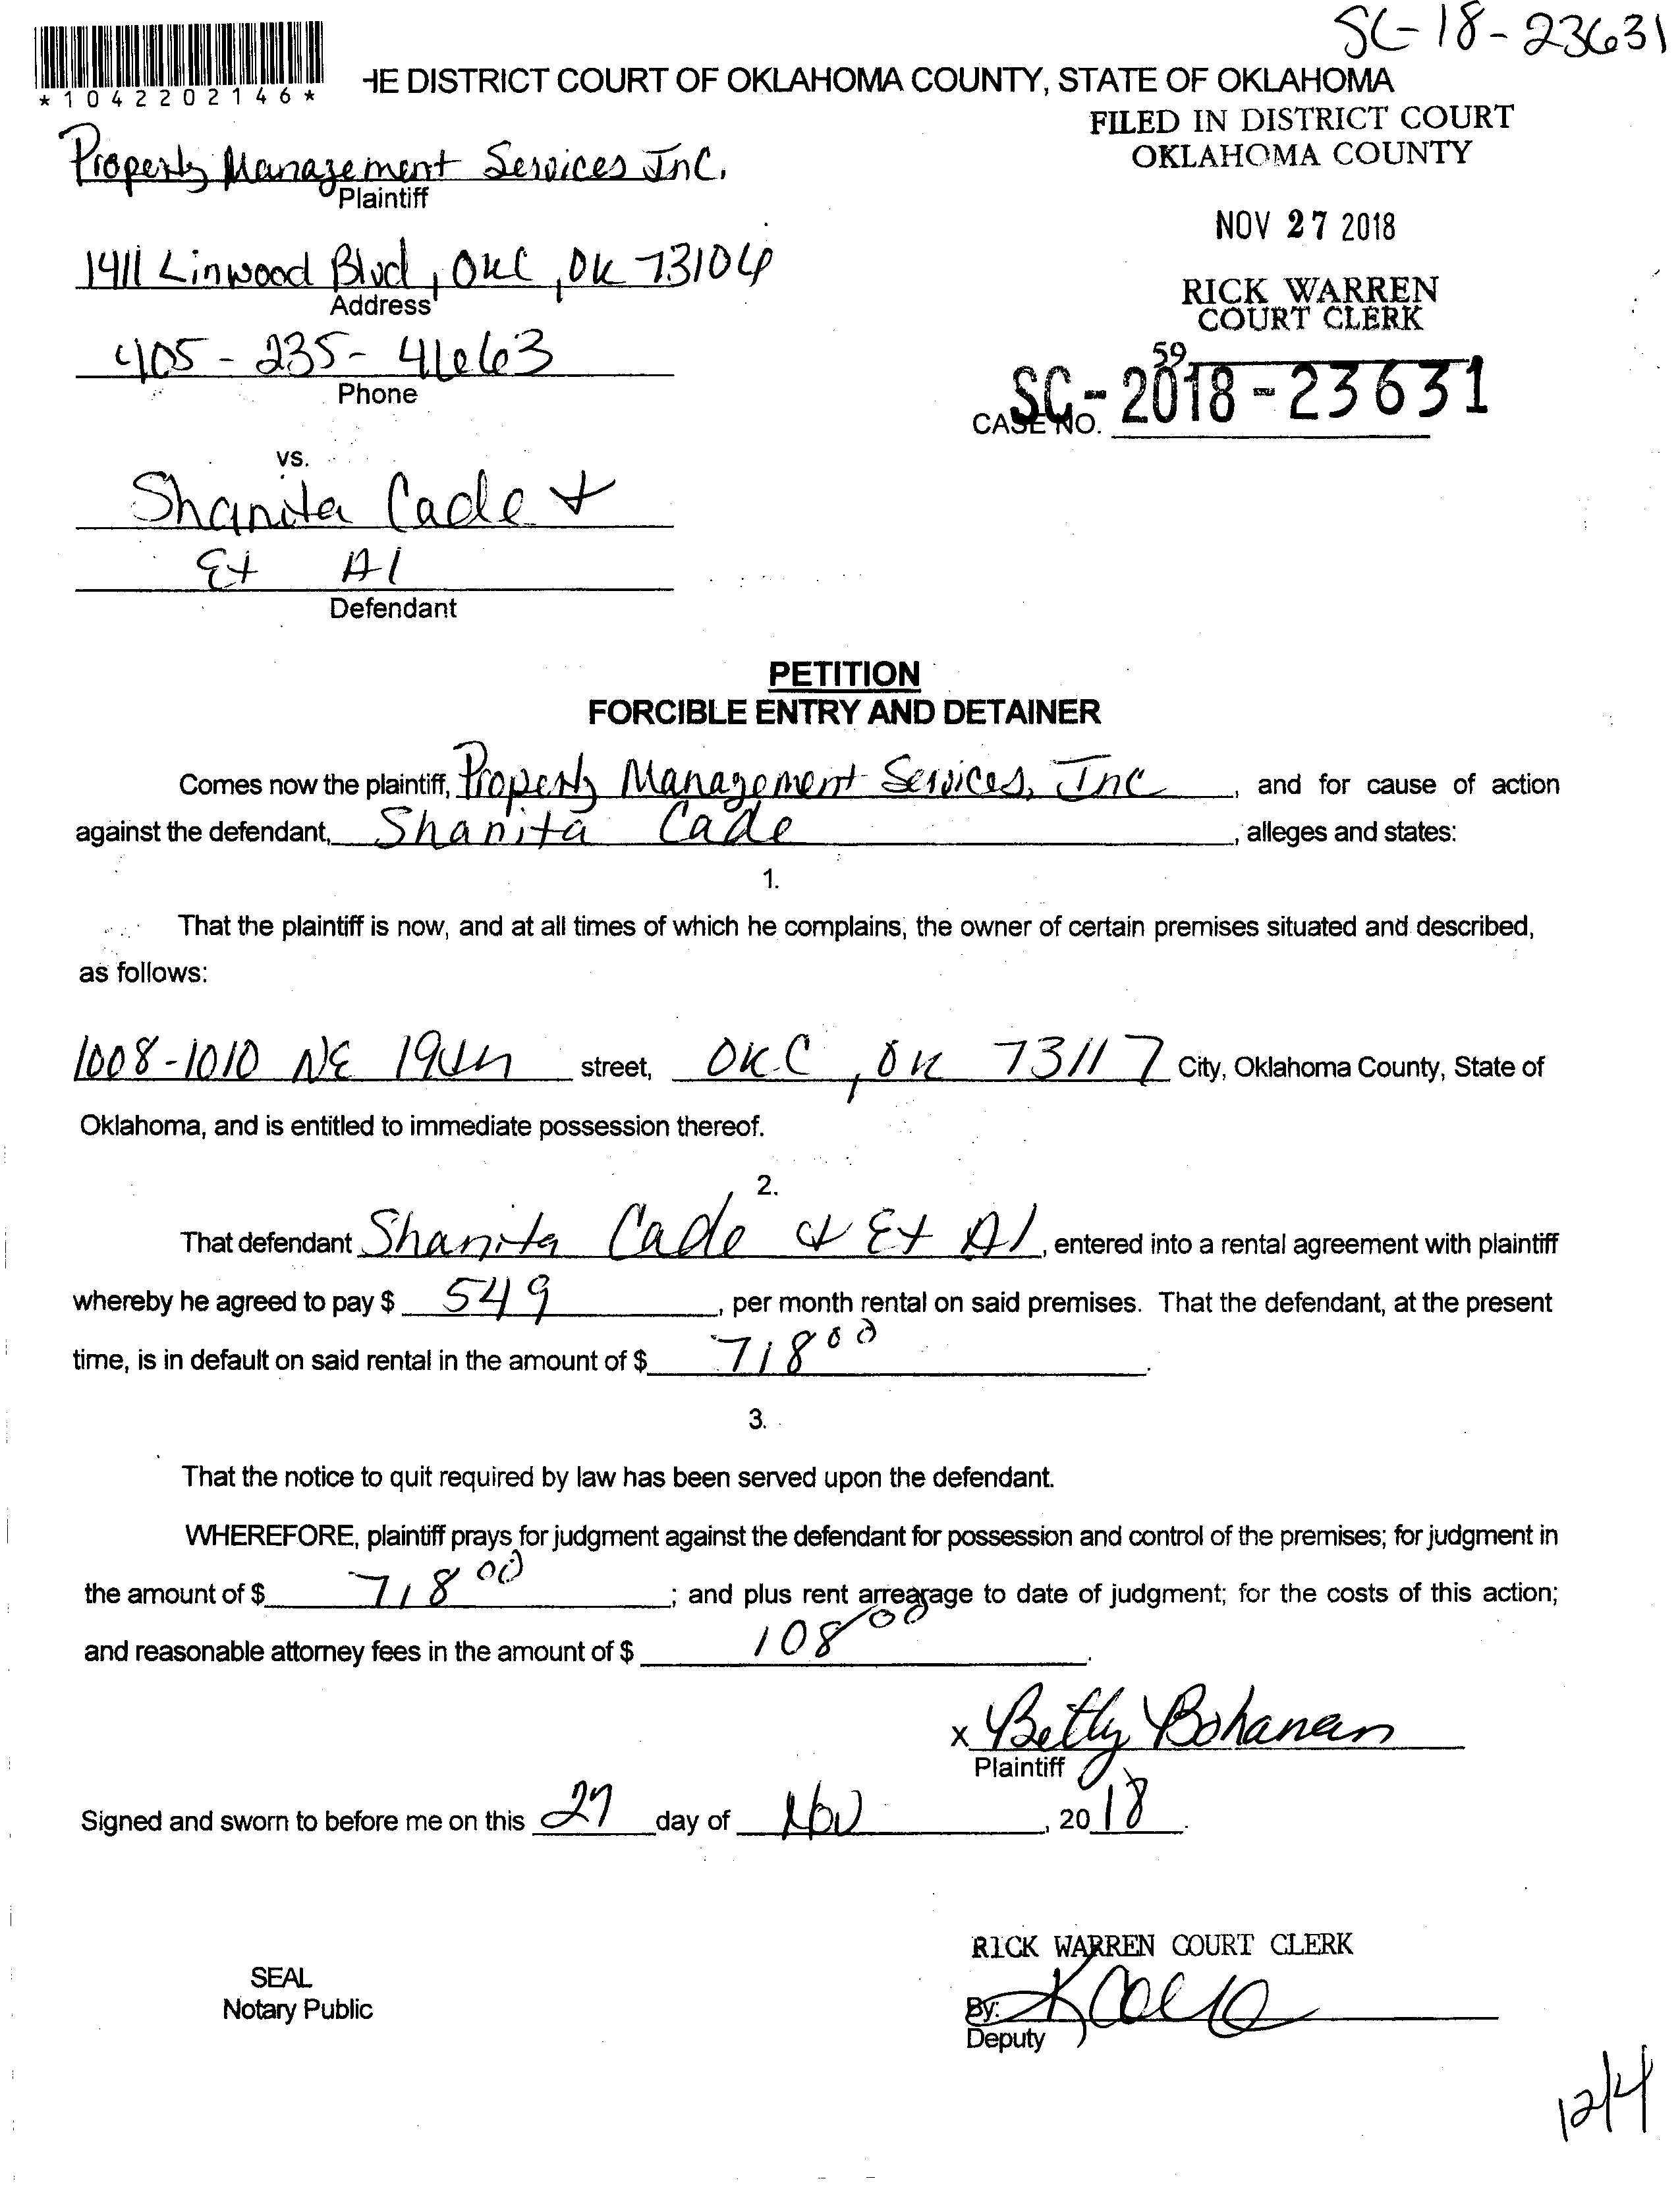 SC-18-23631
*1042202146*
HE DISTRICT COURT OF OKLAHOMA COUNTY, STATE OF OKLAHOMA
FILED IN DISTRICT COURT
OKLAHOMA COUNTY
Property Management Services Inc.
Plaintiff
NOV 27 2018
1411 Linwood Blvd, OKC, OK 73106
Address
RICK WARREN
COURT CLERK
405-235-4663
Phone
59
CASE NO. SC-2018-23631
vs.
Shanita Cade &
Et Al
Defendant
PETITION
FORCIBLE ENTRY AND DETAINER
Comes now the plaintiff, Property Management Services, Inc, and for cause of action
against the defendant, Shanita Cade, alleges and states:
1.
That the plaintiff is now, and at all times of which he complains, the owner of certain premises situated and described,
as follows:
1008-1010 NE 19th street, OKC, OK 73117 City, Oklahoma County, State of
Oklahoma, and is entitled to immediate possession thereof.
2.
That defendant Shanita Cade & Et Al, entered into a rental agreement with plaintiff
whereby he agreed to pay $ 549, per month rental on said premises. That the defendant, at the present
time, is in default on said rental in the amount of $ 718 00.
3.
That the notice to quit required by law has been served upon the defendant.
WHEREFORE, plaintiff prays for judgment against the defendant for possession and control of the premises; for judgment in
the amount of $ 718 00; and plus rent arrearage to date of judgment; for the costs of this action;
and reasonable attorney fees in the amount of $ 108 00.
X Betty Bohanan
Plaintiff
Signed and sworn to before me on this 27 day of Nov, 2018.
RICK WARREN COURT CLERK
SEAL
Notary Public
By:
Deputy
12/4